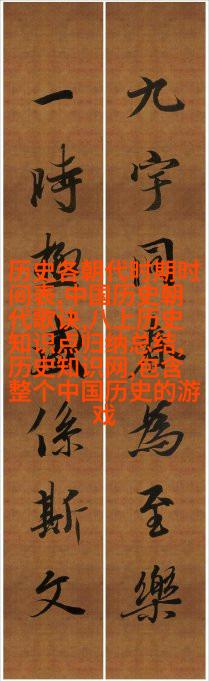 九宇同為至樂
一時係斯文
历史各朝代时期时
间表,中国历史朝
代歌诀,八上历史
知识点归纳总结,
历史知识网,包含
整个中国历史的游
戏